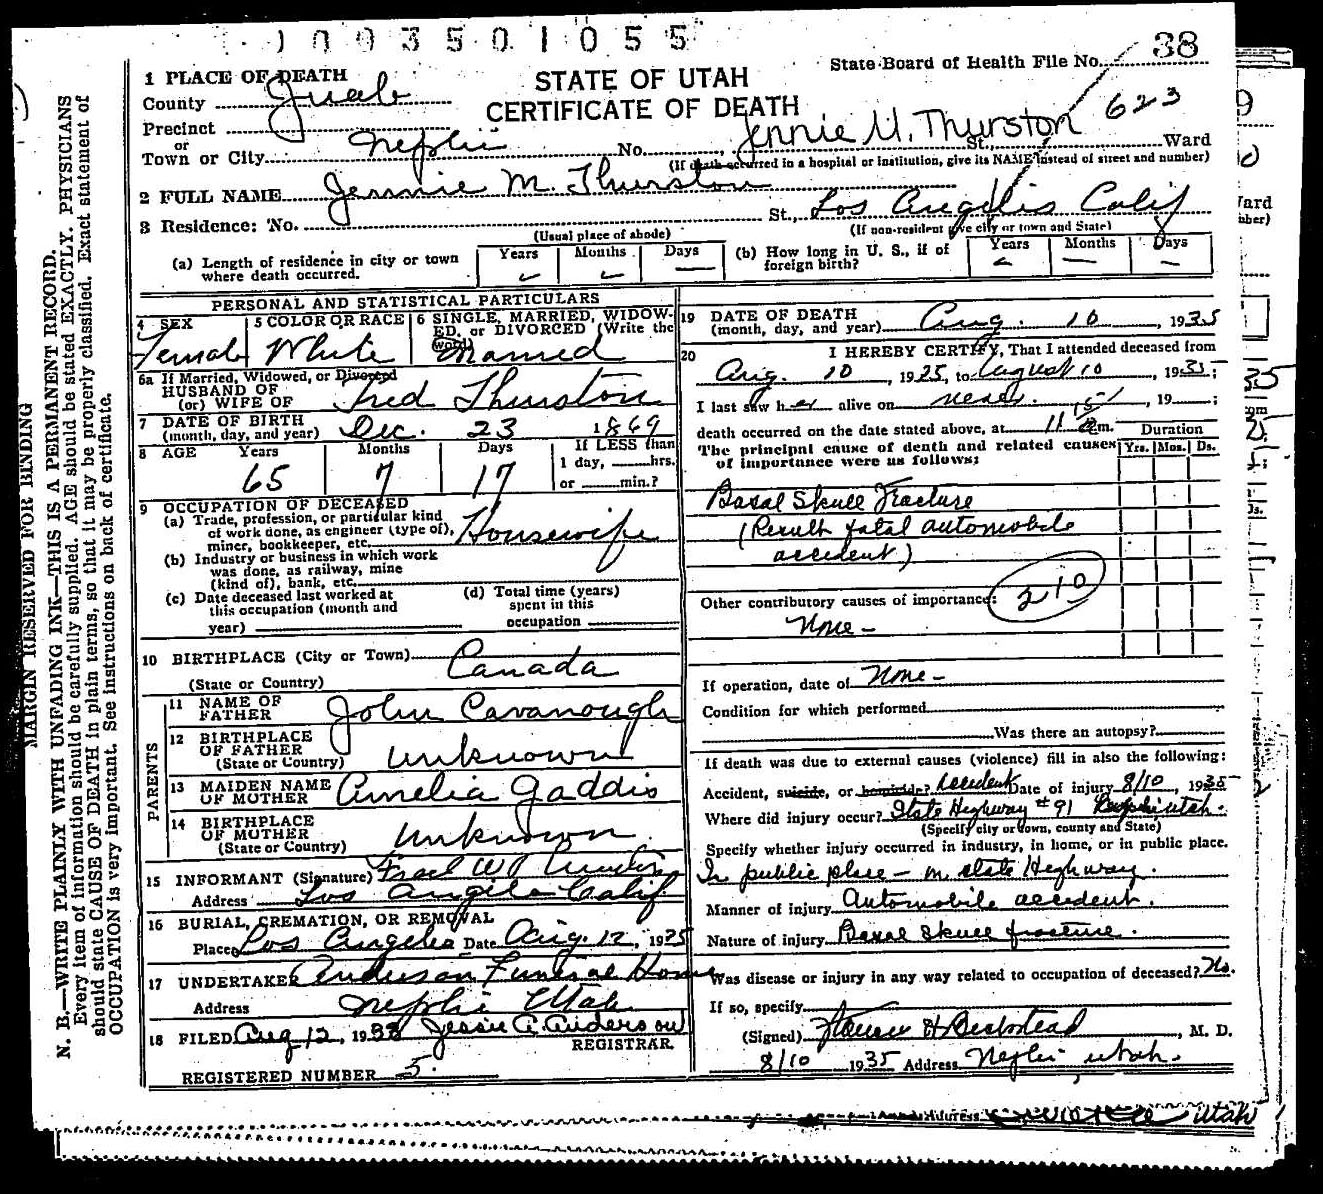 1003501055
38
State Board of Health File No.
623
STATE OF UTAH
CERTIFICATE OF DEATH
1 PLACE OF DEATH
County Juab
Precinct
or
Town or City Nephi No. Jennie M. Thurston St., Ward
(If death occurred in a hospital or institution, give its NAME instead of street and number)
2 FULL NAME Jennie M. Thurston
3 Residence: No. St., Los Angelis Calif
(Usual place of abode) (If non-resident give city or town and State)
(a) Length of residence in city or town where death occurred. Years Months Days —
(b) How long in U. S., if of foreign birth? Years Months — Days —
PERSONAL AND STATISTICAL PARTICULARS
4 SEX Female
5 COLOR OR RACE White
6 SINGLE, MARRIED, WIDOWED, or DIVORCED (Write the word) Married
6a If Married, Widowed, or Divorced
HUSBAND OF
(or) WIFE OF Fred Thurston
7 DATE OF BIRTH
(month, day, and year) Dec. 23 1869
8 AGE Years 65 Months 7 Days 17 If LESS than
1 day, hrs.
or min.?
9 OCCUPATION OF DECEASED
(a) Trade, profession, or particular kind
of work done, as engineer (type of),
miner, bookkeeper, etc. Housewife
(b) Industry or business in which work
was done, as railway, mine
(kind of), bank, etc.
(c) Date deceased last worked at
this occupation (month and
year)
(d) Total time (years)
spent in this
occupation
10 BIRTHPLACE (City or Town) Canada
(State or Country)
PARENTS
11 NAME OF
FATHER John Cavanough
12 BIRTHPLACE
OF FATHER
(State or Country) Unknown
13 MAIDEN NAME
OF MOTHER Amelia Gaddis
14 BIRTHPLACE
OF MOTHER
(State or Country) Unknown
15 INFORMANT (Signature) Fred W
Address Los Angeles Calif
16 BURIAL, CREMATION, OR REMOVAL
Place Los Angeles Date Aug. 12, 1935
17 UNDERTAKER Anderson Funeral Home
Address Nephi Utah
18 FILED Aug 12, 19 Jessie A. Anderson
REGISTRAR
REGISTERED NUMBER 5.
19 DATE OF DEATH
(month, day, and year) Aug. 10, 1935
20 I HEREBY CERTIFY, That I attended deceased from
Aug. 10, 1935, to August 10, 1935;
I last saw her alive on never, 19 ;
death occurred on the date stated above, at 11 15 a m.
Duration
Yrs. Mos. Ds.
The principal cause of death and related causes
of importance were as follows:
Basal Skull Fracture
(Result fatal automobile
accident)
210
Other contributory causes of importance:
None -
If operation, date of None -
Condition for which performed
Was there an autopsy?
If death was due to external causes (violence) fill in also the following:
Accident, suicide, or homicide? Accident Date of injury 8/10, 1935
Where did injury occur? State Highway #91 Nephi Utah.
(Specify city or town, county and State)
Specify whether injury occurred in industry, in home, or in public place.
In public place - on state Highway.
Manner of injury Automobile accident.
Nature of injury Basal Skull fracture.
Was disease or injury in any way related to occupation of deceased? No.
If so, specify
(Signed) H Beckstead, M. D.
8/10 1935 Address Nephi Utah.
Address Utah
MARGIN RESERVED FOR BINDING
N. B.—WRITE PLAINLY WITH UNFADING INK—THIS IS A PERMANENT RECORD.
Every item of information should be carefully supplied. AGE should be stated EXACTLY. PHYSICIANS
should state CAUSE OF DEATH in plain terms, so that it may be properly classified. Exact statement of
OCCUPATION is very important. See instructions on back of certificate.